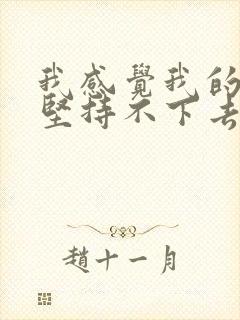 我感覺我的
堅持不下去
趙十一月